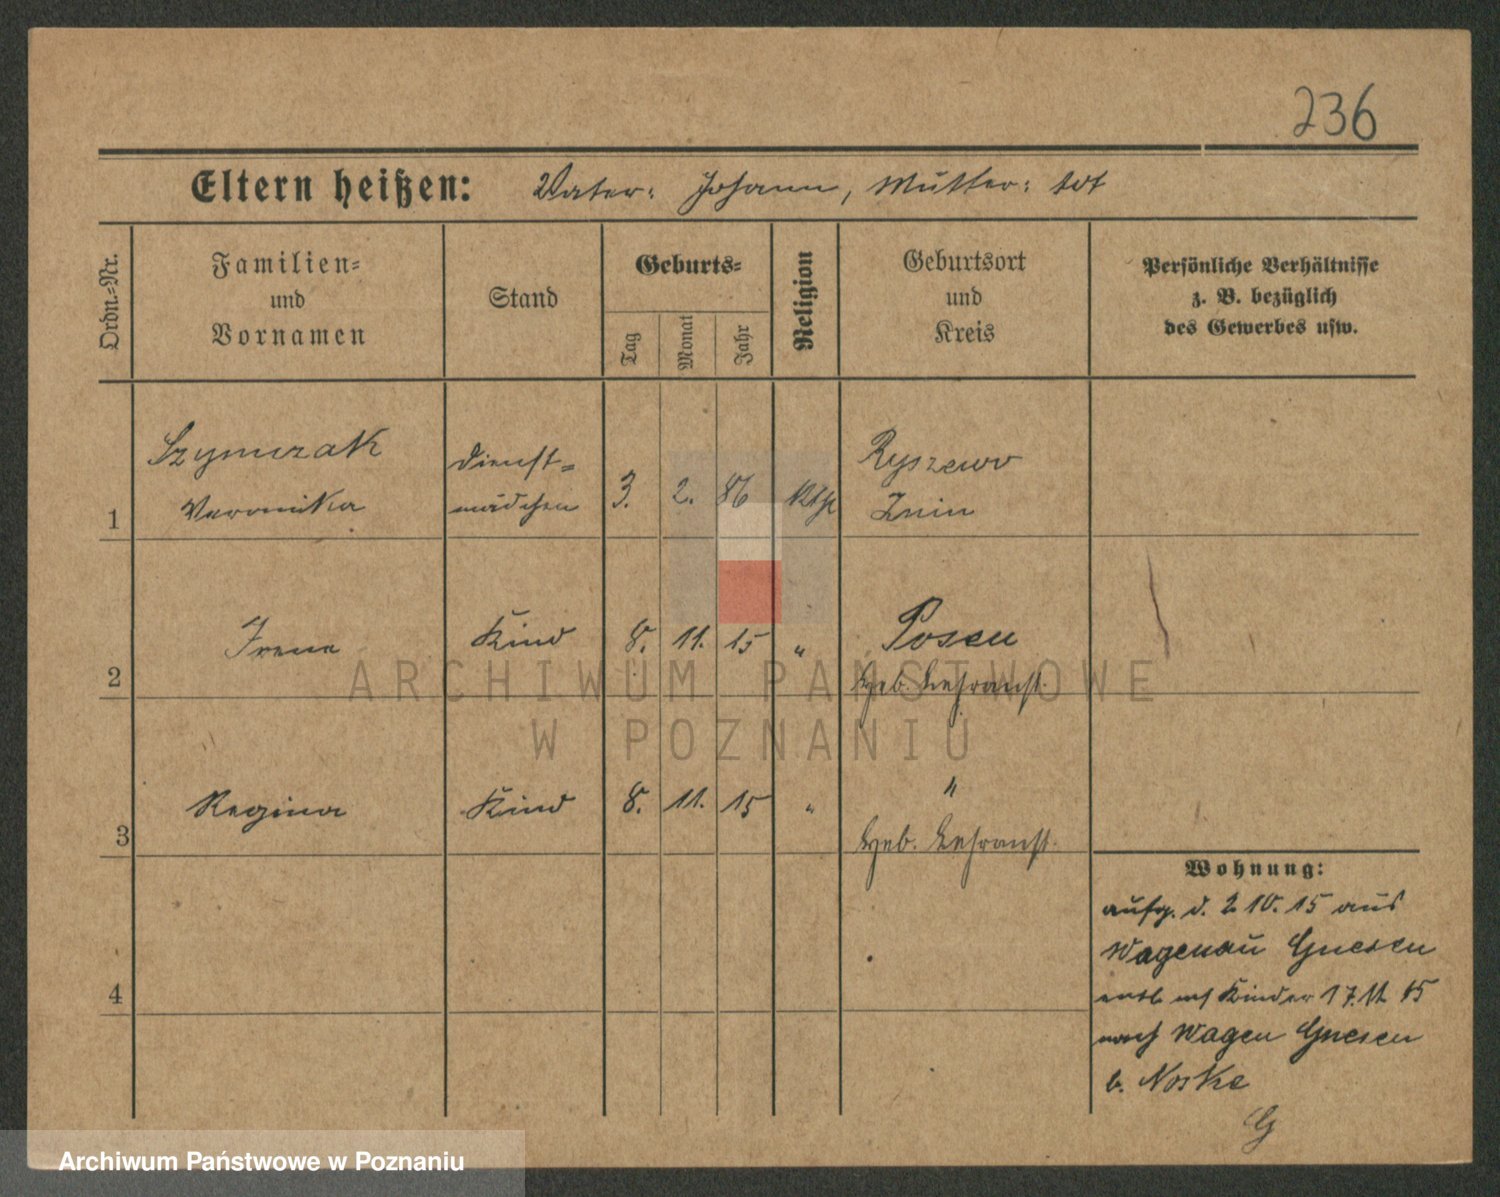 236
Eltern heißen: Vater: Johann, Mutter: tot
Ordn.=Nr.
Familien=
und
Vornamen
Stand
Geburts=
Tag
Monat
Jahr
Religion
Geburtsort
und
Kreis
Persönliche Verhältnisse
z. B. bezüglich
des Gewerbes usw.
Szymczak Dienst= Ryszewo
1 Veronika mädchen 3. 2. 86 kth Znin
Irena Kind 8. 11. 15 " Posen
2 Heb. Lehranst.
Regina Kind 8. 11. 15 " "
3 Heb. Lehranst.
Wohnung:
aufg. d. 2 10. 15 aus
Wagenau Gnesen
4 entl. mit Kinder 17. 11. 15
nach Wagen Gnesen
b. Noske
G
ARCHIWUM PAŃSTWOWE
W POZNANIU
Archiwum Państwowe w Poznaniu